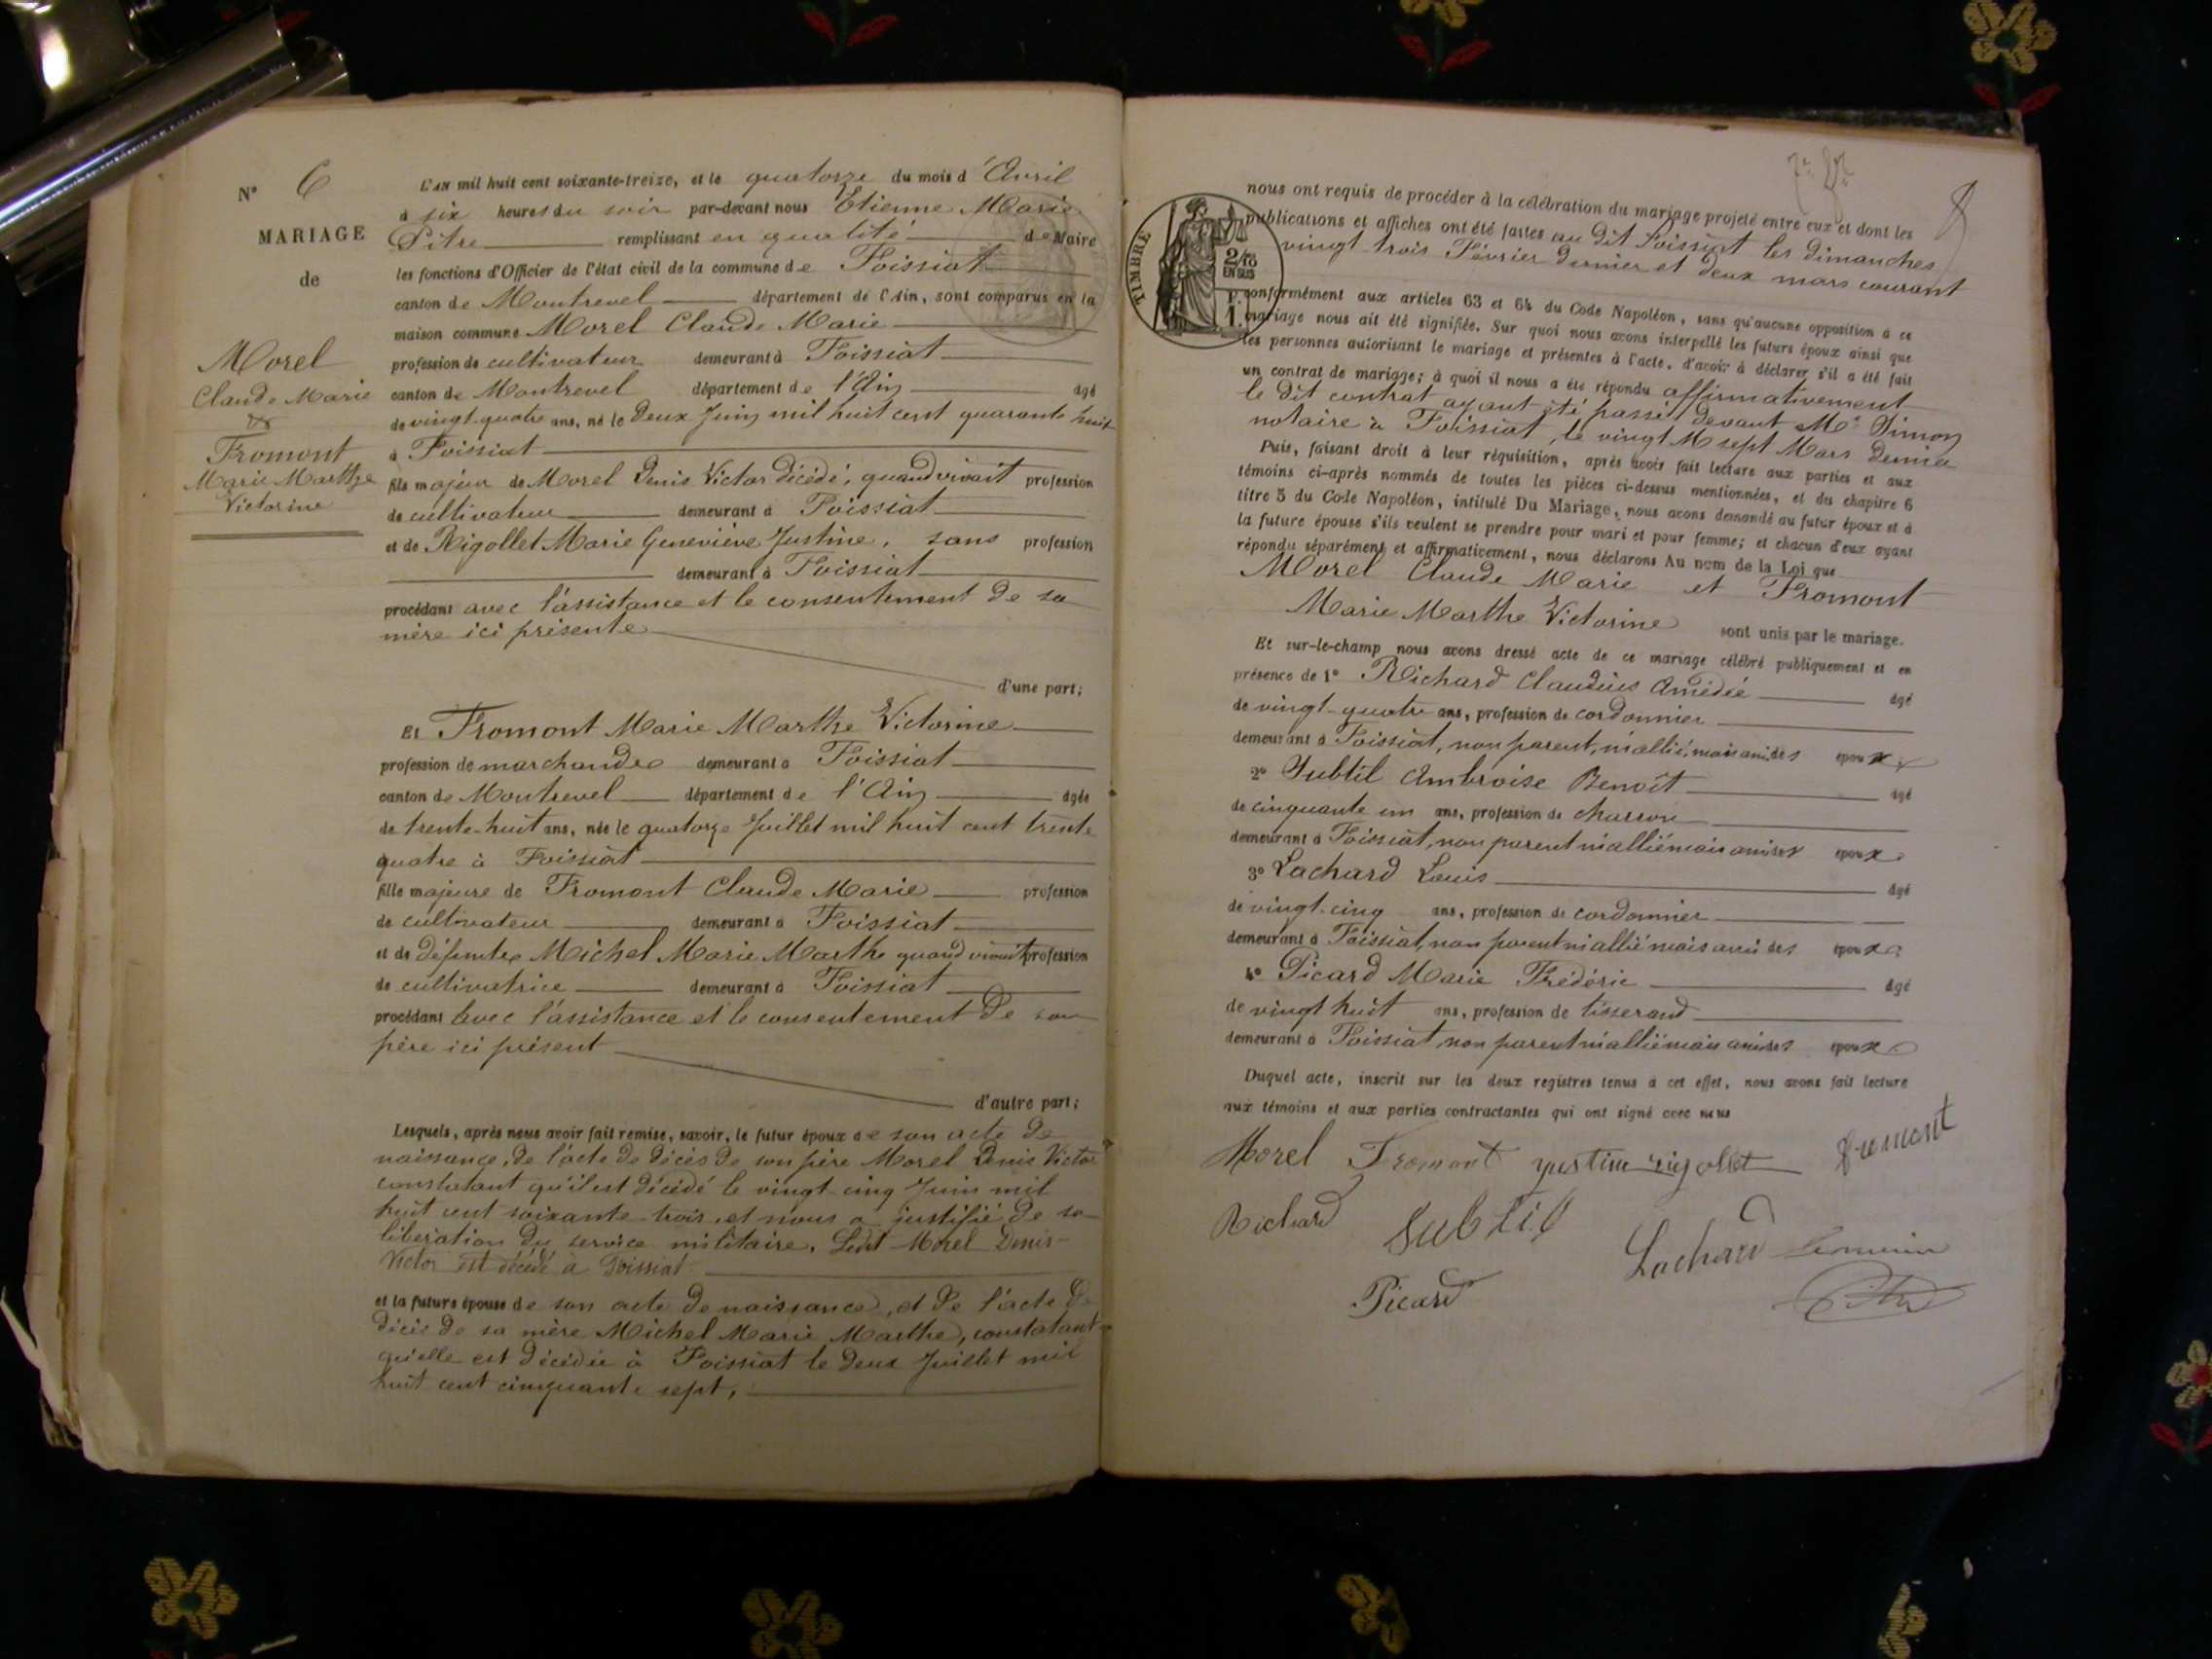 N° 6
MARIAGE
de
Morel
Claude Marie
&
Fromont
Marie Marthe
Victorine
L'AN mil huit cent soixante-treize, et le quatorze du mois d'Avril
à six heures du soir par-devant nous Etienne Marie
Pitre remplissant en qualité de Maire
les fonctions d'Officier de l'état civil de la commune de Foissiat
canton de Montrevel département de l'Ain, sont comparus en la
maison commune Morel Claude Marie
profession de cultivateur demeurant à Foissiat
canton de Montrevel département de l'Ain âgé
de vingt-quatre ans, né le deux Juin mil huit cent quarante huit
à Foissiat
fils majeur de Morel Denis Victor décédé, quand vivait profession
de cultivateur demeurant à Foissiat
et de Rigollet Marie Geneviève Justine, sans profession
demeurant à Foissiat
procédant avec l'assistance et le consentement de sa
mère ici présente
d'une part;
Et Fromont Marie Marthe Victorine
profession de marchande demeurant à Foissiat
canton de Montrevel département de l'Ain âgée
de trente-huit ans, née le quatorze Juillet mil huit cent trente
quatre à Foissiat
fille majeure de Fromont Claude Marie profession
de cultivateur demeurant à Foissiat
et de défunte Michel Marie Marthe quand vivait profession
de cultivatrice demeurant à Foissiat
procédant avec l'assistance et le consentement de son
père ici présent
d'autre part;
Lesquels, après nous avoir fait remise, savoir, le futur époux de son acte de
naissance, de l'acte de décès de son père Morel Denis Victor
constatant qu'il est décédé le vingt-cinq Juin mil
huit cent soixante-trois, et nous a justifié de sa
libération du service militaire. Ledit Morel Denis-
Victor est décédé à Foissiat
et la future épouse de son acte de naissance, et de l'acte de
décès de sa mère Michel Marie Marthe, constatant
qu'elle est décédée à Foissiat le deux Juillet mil
huit cent cinquante sept,
TIMBRE
2/10
EN SUS
nous ont requis de procéder à la célébration du mariage projeté entre eux et dont les
publications et affiches ont été faites au dit Foissiat les dimanches
vingt trois Février dernier et deux mars courant
conformément aux articles 63 et 64 du Code Napoléon, sans qu'aucune opposition à ce
mariage nous ait été signifiée. Sur quoi nous avons interpellé les futurs époux ainsi que
les personnes autorisant le mariage et présentes à l'acte, d'avoir à déclarer s'il a été fait
un contrat de mariage; à quoi il nous a été répondu affirmativement
le dit contrat ayant été passé devant Me Simon
notaire à Foissiat, le vingt sept Mars dernier
Puis, faisant droit à leur réquisition, après avoir fait lecture aux parties et aux
témoins ci-après nommés de toutes les pièces ci-dessus mentionnées, et du chapitre 6
titre 5 du Code Napoléon, intitulé Du Mariage, nous avons demandé au futur époux et à
la future épouse s'ils veulent se prendre pour mari et pour femme; et chacun d'eux ayant
répondu séparément et affirmativement, nous déclarons Au nom de la Loi que
Morel Claude Marie et Fromont
Marie Marthe Victorine sont unis par le mariage.
Et sur-le-champ nous avons dressé acte de ce mariage célébré publiquement et en
présence de 1° Richard Claudius Amédée âgé
de vingt-quatre ans, profession de cordonnier
demeurant à Foissiat, non parent, ni allié, mais ami des époux
2° Subtil Ambroise Benoît âgé
de cinquante un ans, profession de charron
demeurant à Foissiat, non parent ni allié mais ami des époux
3° Lachard Louis âgé
de vingt-cinq ans, profession de cordonnier
demeurant à Foissiat, non parent ni allié mais ami des époux
4° Picard Marie Frédéric âgé
de vingt huit ans, profession de tisserand
demeurant à Foissiat non parent ni allié mais ami des époux
Duquel acte, inscrit sur les deux registres tenus à cet effet, nous avons fait lecture
aux témoins et aux parties contractantes qui ont signé avec nous
Morel Fromont Justine rigollet fromont
Richard Subtil Lachard
Picard Pitre